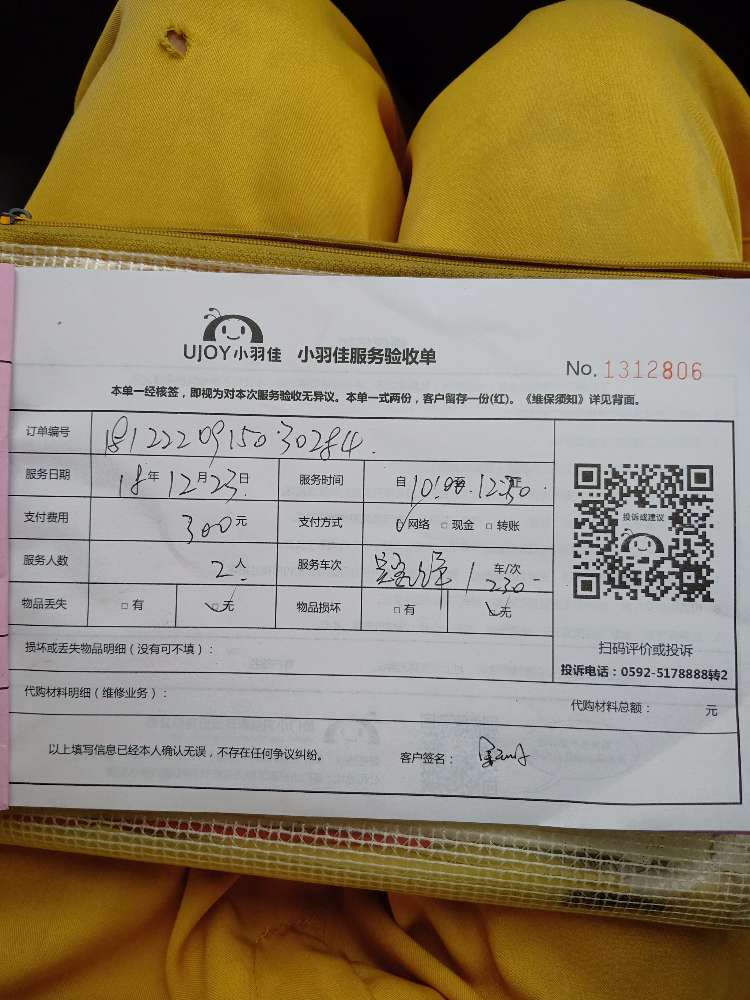 UJOY小羽佳 小羽佳服务验收单
No. 1312806
本单一经核签，即视为对本次服务验收无异议。本单一式两份，客户留存一份(红)。《维保须知》详见背面。
订单编号 1812220915030284
服务日期 18年12月23日 服务时间 自10:00 12:30
支付费用 300元 支付方式 网络 □ 现金 □ 转账
服务人数 2人 服务车次 1车/次 230
物品丢失 □ 有 □ 无 物品损坏 □ 有 □ 无
投诉或建议
扫码评价或投诉
投诉电话：0592-5178888转2
损坏或丢失物品明细（没有可不填）：
代购材料明细（维修业务）： 代购材料总额： 元
以上填写信息已经本人确认无误，不存在任何争议纠纷。 客户签名：